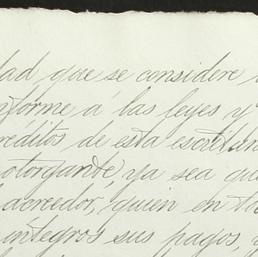 dad que se considere
nforme á las leyes y
réditos, de esta escri
otorgante, ya sea que
acreedor, quien en ta
integros sus pagos, y